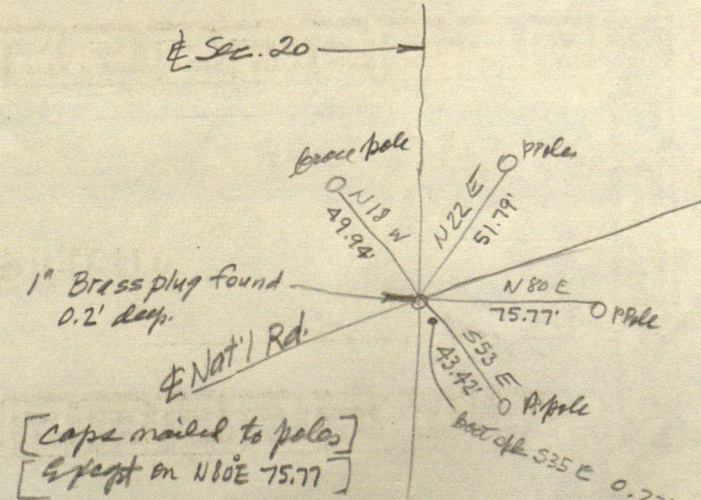 ℄ Sec. 20
brace pole
PPoles
N18 W
49.94'
N22 E
51.79'
1" Brass plug found
0.2' deep.
N80E
75.77'
PPole
℄ Nat'l Rd.
S53 E
43.42'
P.pole
S35 E 0.7
[caps nailed to poles]
[Except on N80°E 75.77]